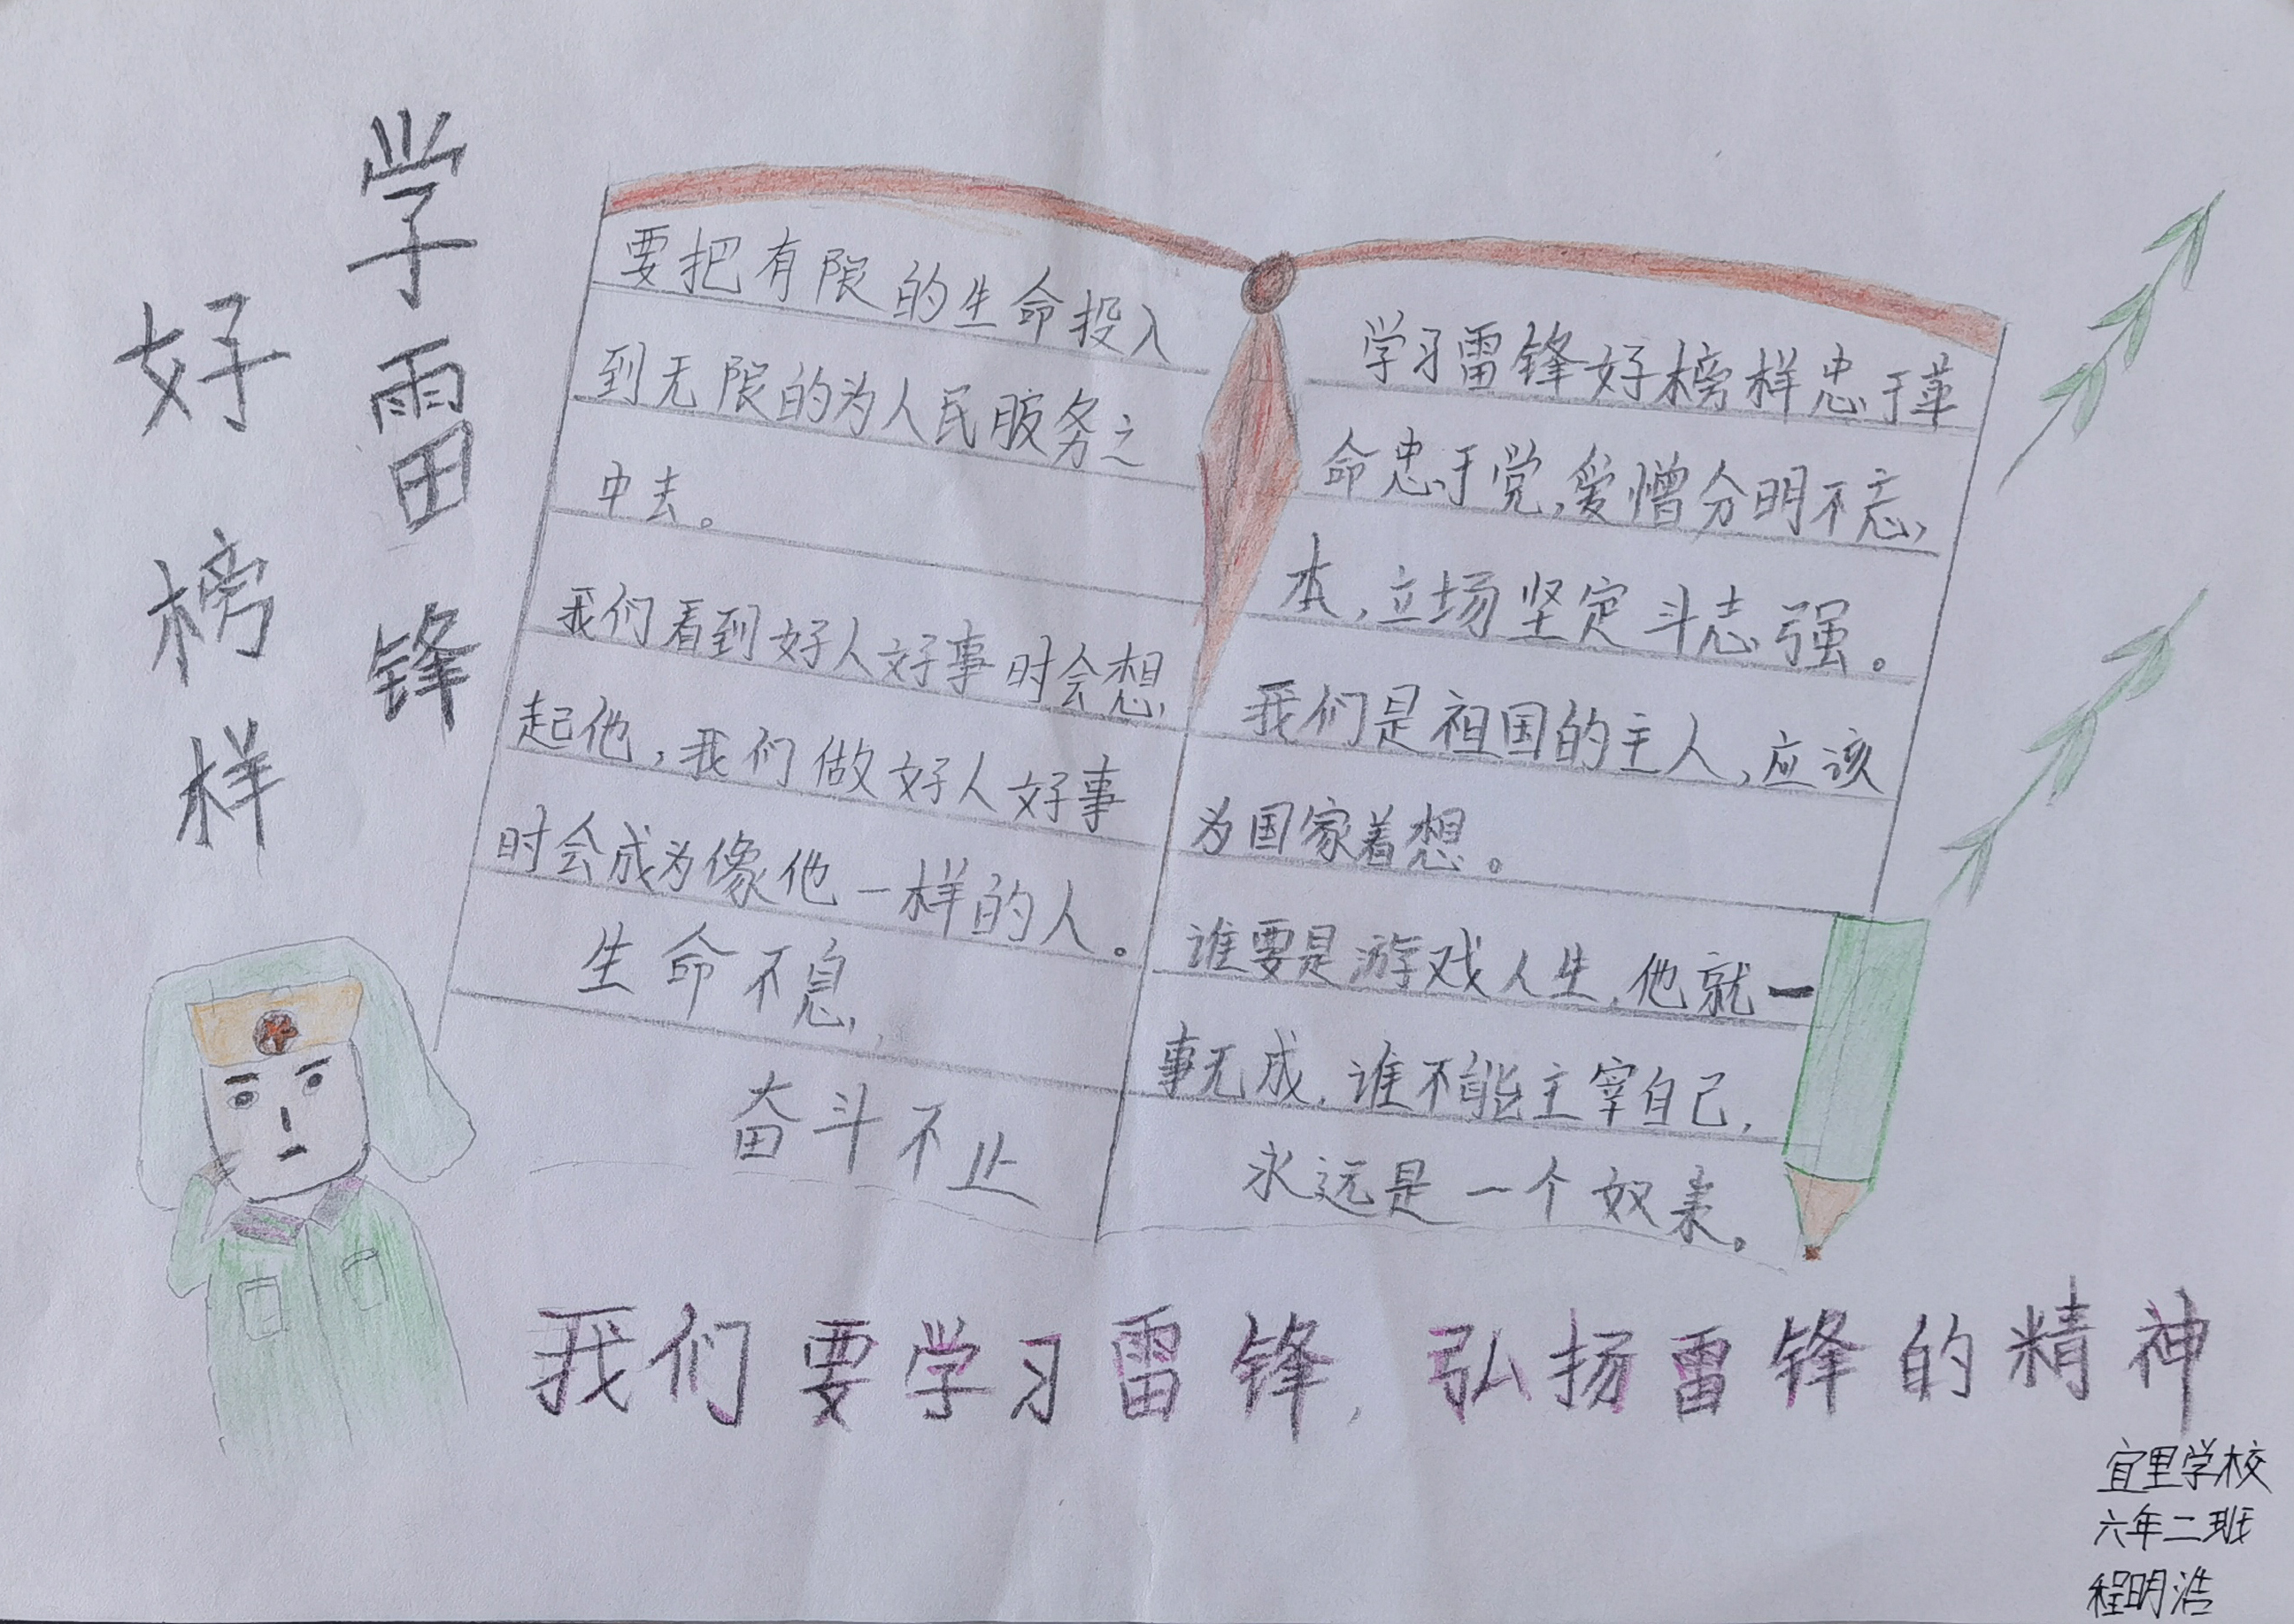 学雷锋
好榜样
要把有限的生命投入
到无限的为人民服务之
中去。
我们看到好人好事时会想
起他,我们做好人好事
时会成为像他一样的人。
生命不息,
奋斗不止
学习雷锋好榜样忠于革
命忠于党,爱憎分明不忘
本,立场坚定斗志强。
我们是祖国的主人,应该
为国家着想。
谁要是游戏人生,他就一
事无成,谁不能主宰自己,
永远是一个奴隶。
我们要学习雷锋,弘扬雷锋的精神
宜里学校
六年二班
程明浩